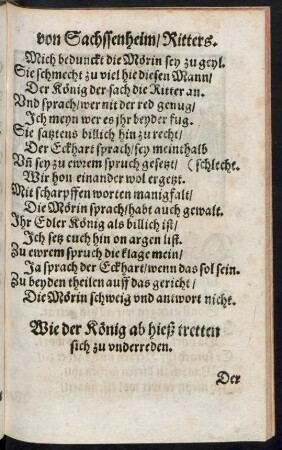 von Sachssenheim/ Ritters.
Mich bedunckt die Mörin sey zu geyl.
Sie schmecht zu viel hie diesen Mann/
Der König der sach die Ritter an.
Vnd sprach/ wer nit der red genug/
Ich meyn wer es jhr beyder fug.
Sie satztens billich hin zu recht/
Der Eckhart sprach/ sey meinthalb
Vñ sey zu ewrem spruch gesetzt/ (schlecht.
Wir hon einander wol ergetzt.
Mit scharpffen worten manigfalt/
Die Mörin sprach/ habt auch gewalt.
Ihr Edler König als billich ist/
Ich setz euch hin on argen list.
Zu ewrem spruch die klage mein/
Ja sprach der Eckhart/ wenn das sol sein.
Zu beyden theilen auff das gericht/
Die Mörin schweig vnd antwort nicht.
Wie der König ab hieß tretten
sich zu vnderreden.
Der